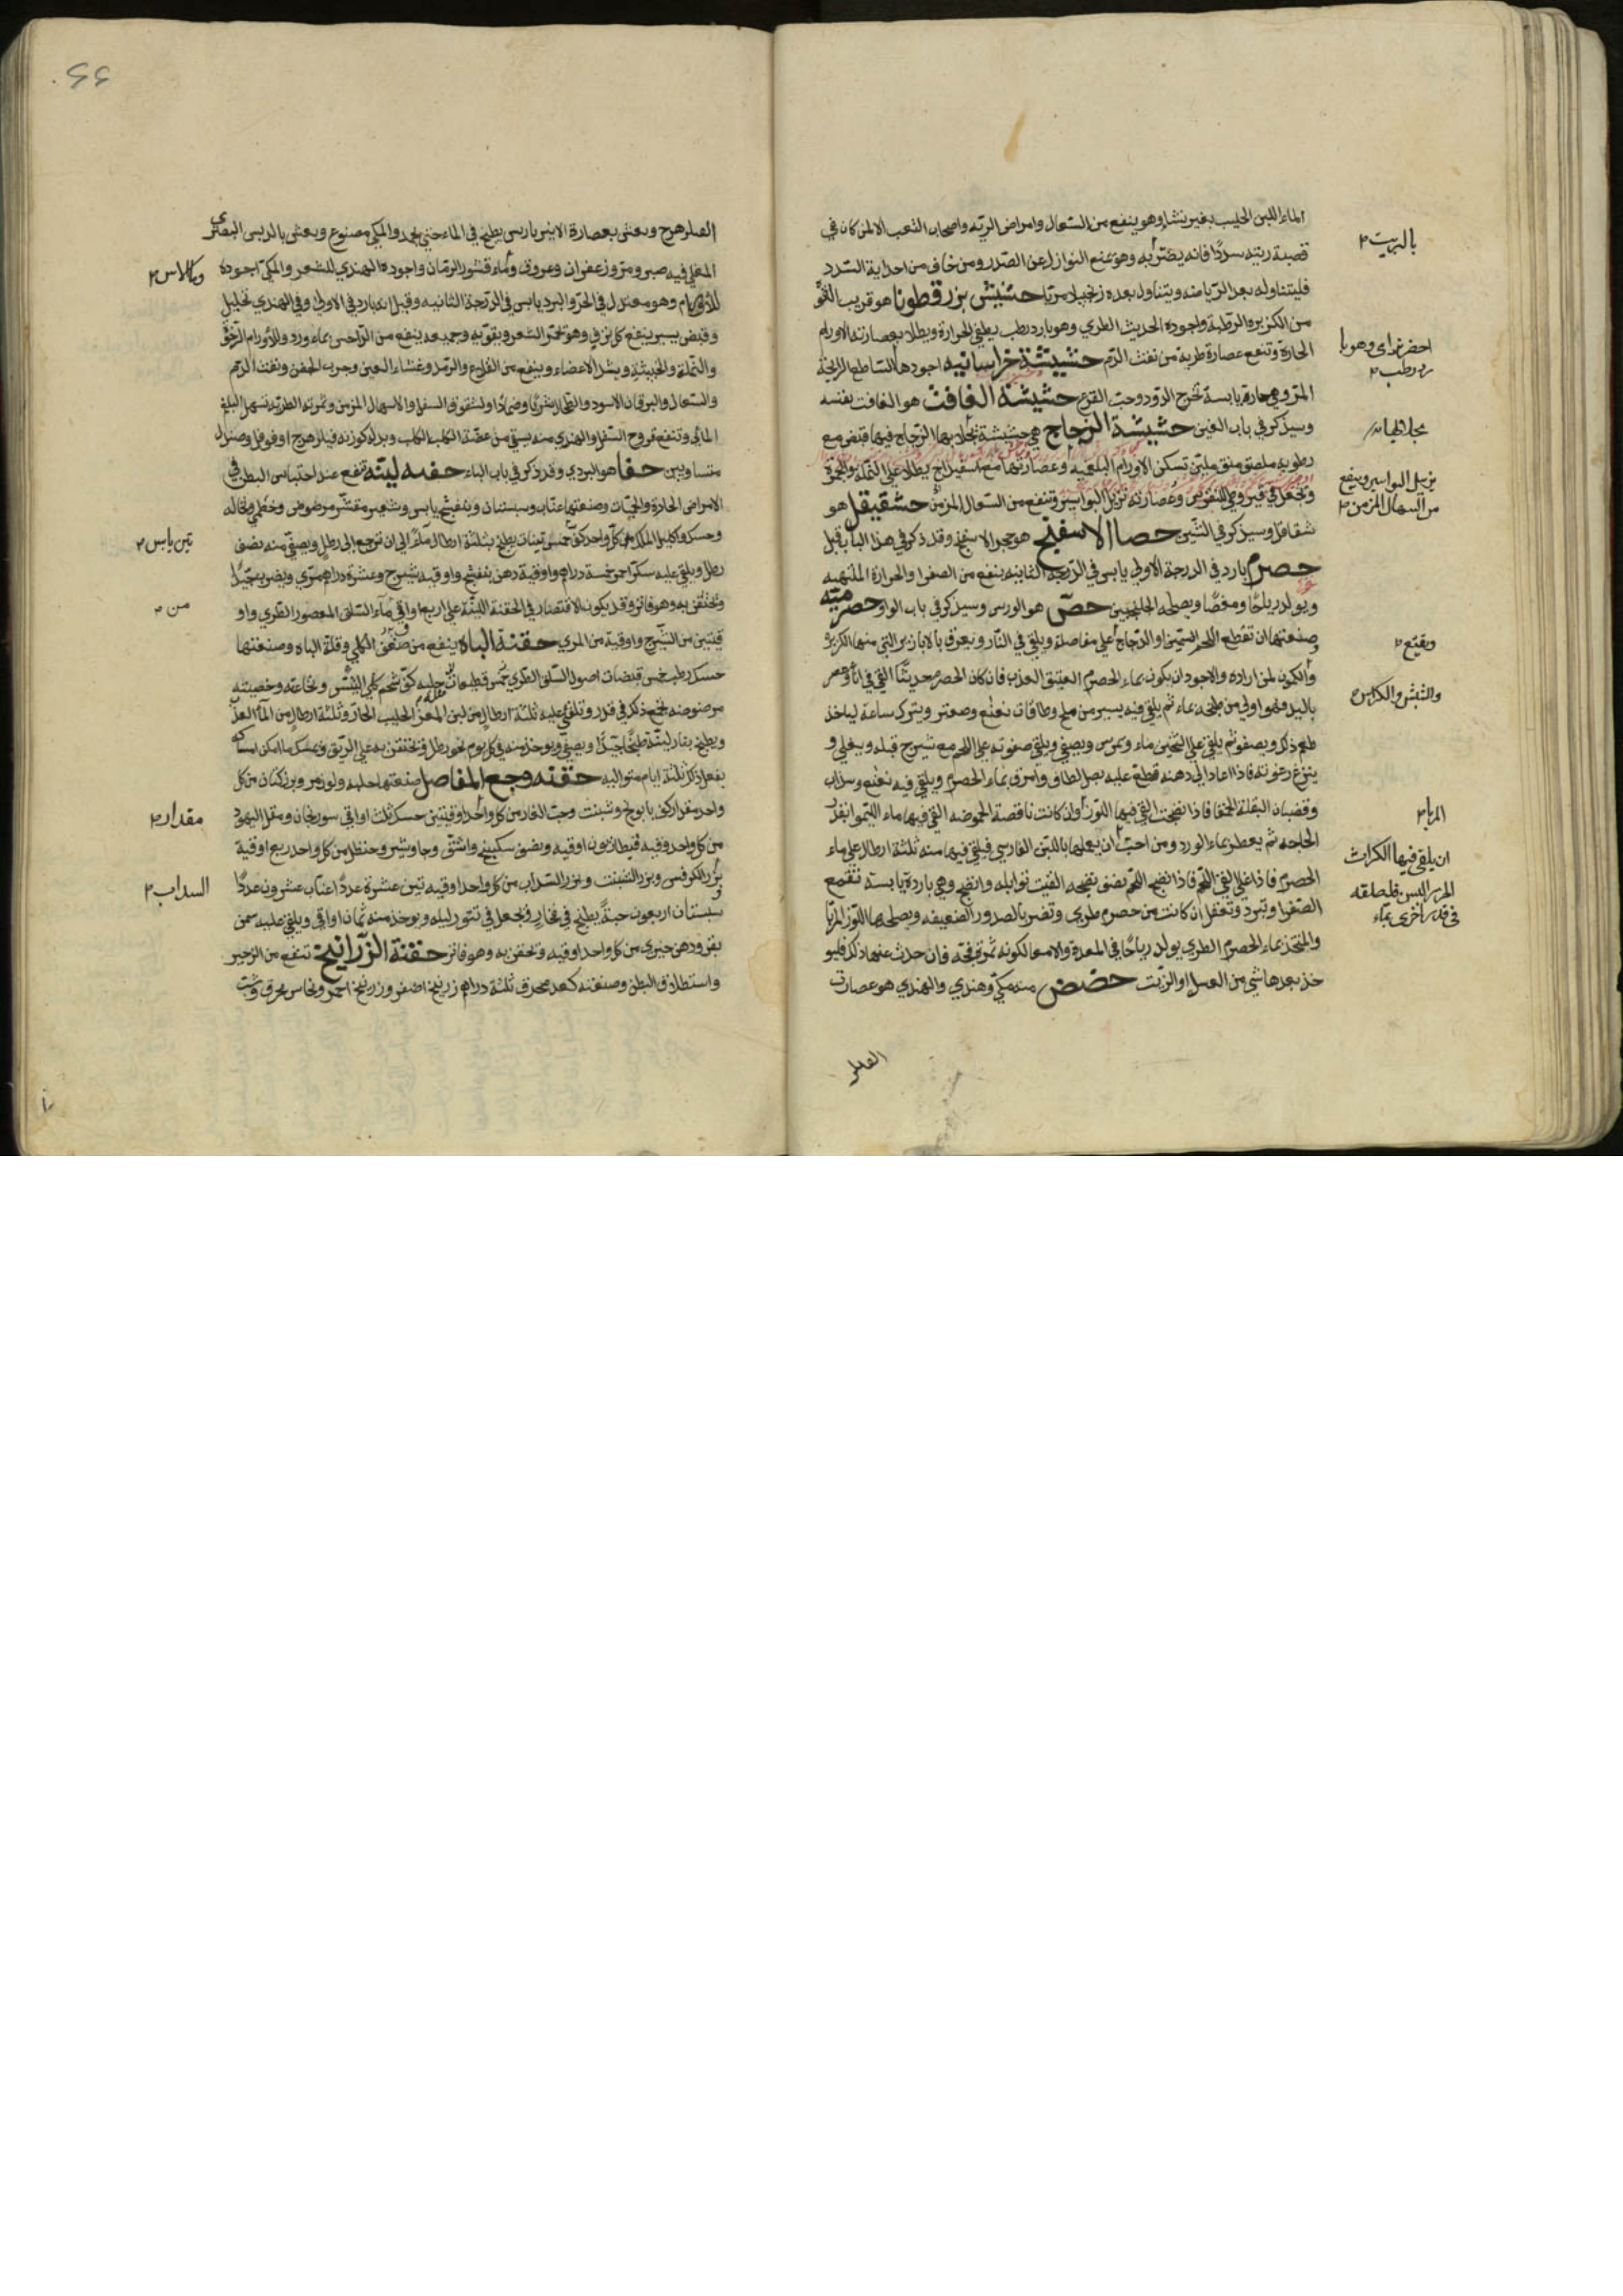 الماء اللبن الحليب بغير نشا وهو ينفع من السعال وامراض الرية واصحاب التعب الا لمن كان في
قصبة ريته سددًا فانه يضر به وهو يمنع النوازل عن الصدر ومن خاف من احداثه السدد
فليتناوله بعد الرياضه ويتناول بعده زنجبيلا مربا حشيش بزرقطونا هو قريب القو
من الكزبره الرطبة واجوده الحديث الطري وهو بارد رطب يطفي الحرارة ويطلا بعصارته الاورام
الحارة وتنفع عصارة طريه من نفث الدم حشيشة خراسانيه اجودها الساطع الرايحة
المر وهي حارة يابسة تخرج الدود وحب القرع حشيشة الغافت هو الغافت بنفسه
وسيذكر في باب الغين حشيشة الزجاج هي حشيشة يجلا بها الزجاج فيها قبض مع
رطوبه ملصق منق ملين تسكن الاورام البلغميه وعصارتها مع اسفيداج يطلا على النملة والحمرة
وتجعل في قيروطي للنقرس وعصارته تزيل البواسير وتنفع من السعال المزمن حشقيقل هو
شقاقل وسيذكر في الشين حصا الاسفنج هو حجر الاسفنج وقد ذكر في هذا الباب قبل
حصرم بارد في الدرجة الاولى يابس في الدرجة الثانيه ينفع من الصفرا والحرارة الملتهبه
ويولد رياحًا ومغصًا ويصلحه الجلنجبين حص هو الورس وسيذكر في باب الواو حصرميته
وصنعتها ان تقطع اللحم السمين او الدجاج على مفاصله ويلقى في النار ويعرف بالابازير التي منها الكزبرة
والكمون لمن اراده والاجود ان يكون بماء الحصرم العتيق العذب فان كان الحصرم حديثًا القي في اناء وعصر
باليد فهو اولى من طبخه بماء ثم يلقى فيه يسير من ملح وطاقات نعنع وصعتر ويترك ساعة لياخذ
طعم ذلك ويصفو ثم يلقى على الثخين ماء ويمرس ويصفى ويلقى صفوته على اللحم مع شيرج قبله ويغلي و
ينزع رغوته فاذا عاد الى دهنه قطع عليه بصل وامرق بماء الحصرم ويلقى فيه نعنع وسذاب
وقضبان البقلة الحمقا فاذا نضجت القي فيها اللوز وان كانت ناقصة الحموضه القي فيها ماء الليمو انفذ
الحاجه ثم يعطر بماء الورد ومن احب ان يعملها باللبن الفارسي فيلقى فيها منه ثلثة ارطال على ماء
الحصرم فاذا غلي القي اللحم فاذا نضج اللحم نصف نضجه القيت توابله وانضج وهي باردة يابسه تقمع
الصفرا وتبرد وتعقل ان كانت من حصرم طري وتضر بالصدور الضعيفه ويصلحها اللوز المربا
والمتخذ بماء الحصرم الطري يولد رياحًا في المعدة والامعا لكونه ثمرة فجه فان حدث عنها ذلك فليو
خذ بعدها شي من العسل او الزبت حضض منه مكي وهندي والهندي هو عصارت
بالزيت
ردرطب
ينزيل البواسير وينفع
من السعال المزمن
ويقنع
ان يلقى فيها الكراث
فليصلقه
في قدر اخرى بماء
المربا
الفيلزهرج ويغش بعصارة الانبرباريس يطبخ في الماء حتى يجمد والمكي مصنوع ويغش بالدبس البصري
المغلي فيه صبر ومر وزعفران وعروق وماء قشور الرمان واجوده الهندي للشعر والمكي اجوده
للاورام وهو معتدل في الحر والبرد يابس في الدرجة الثانيه وقيل انه بارد في الاولى وفي الهندي تحليل
وقبض يسير ينفع كل نزف وهو تحمر الشعر ويقويه وجميعه ينفع من الداحس بماء ورد وللاورام الرخوة
والنملة والخبيثة ويشد الاعضاء وينفع من القلاع والرمد وغشاء العين وجرب الجفن ونفث الدم
والسعال واليرقان الاسود والطحال شربًا وضمادًا ولشقوق السفل والاسهال المزمن وثمرته الطرية تسهل البلغم
المائي وتنفع قروح السفل والهندي منه يسقى من عضة الكلب الكلب وبدله كوزنه فيلزهرج او فوفل وصندل
متساويين حفا هو البردي وقد ذكر في باب الباء حقنه لينه تنفع عند احتباس البطن في
الامراض الحادة والحميات وصنعتها عناب وسبستان وبنفسج يابس وشعير مقشر مرضوض وخطمي ونخاله
وحسك واكليل الملك من كل واحد كف خمس تينات يطبخ بثلثة ارطال ماء الى ان ترجع الى رطل ويصفى منه نصف
رطل ويلقى عليه سكر احمر خمسة دراهم واوقية دهن بنفسج واوقيه شيرج وعشرة دراهم مري ويضرب جيدًا
وتحتقن به وهو فاتر وقد يكون الاقتصار في الحقنة اللينة على اربع اواقي ماء السلق المعصور الطري واو
قيتين من الشيرج واوقية من المري حقنة الباه ينفع من ضعف الكلى وقلة الباه وصنعتها
حسك رطب خمس قبضات اصول السلق الطري خمس قطعات حلبه كف شحم كلى التيس ونخاعته وخصيته
مرضوضه يجمع ذلك في قدر ويلقى عليه ثلثة ارطال من لبن المعز الحليب الحار وثلثة ارطال من الماء العذب
ويطبخ بنار لينة طبخًا جيدًا ويصفى ويوخذ منه في كل يوم نحو رطل ويحتقن به على الريق ويمسك ما امكن امساكه
يفعل ذلك ثلثة ايام متواليه حقنه وجع المفاصل صنعتها حلبه ولوز مر وبزركتان من كل
واحد مقدار كف بابونج وشبث وحب الغار من كل واحد اوقيتين حسك ثلث اواقي سورنجان ومقل اليهود
من كل واحد وقيه قنطاريون اوقيه ونصف سكبينج واشق وجاوشير وحنظل من كل واحد ربع اوقية
بزر الكرفس وبزر الشبث وبزر السذاب من كل واحد اوقيه تين عشرة عددًا عناب عشرون عددًا
سبستان اربعون حبة يطبخ في فخار ويجعل في تنور ليله ويوخذ منه ثمان اواقي ويلقى عليه سمن
بقر ودهن خيري من كل واحد اوقيه وتحقن به وهو فاتر حقنة الزرانيخ تنفع من الزحير
واستطلاق البطن وصنعته كعد محرق ثلثة دراهم زرنيخ اصفر وزرنيخ احمر ونحاس محرق وشب
تين يابس
من
مقدار
السداب